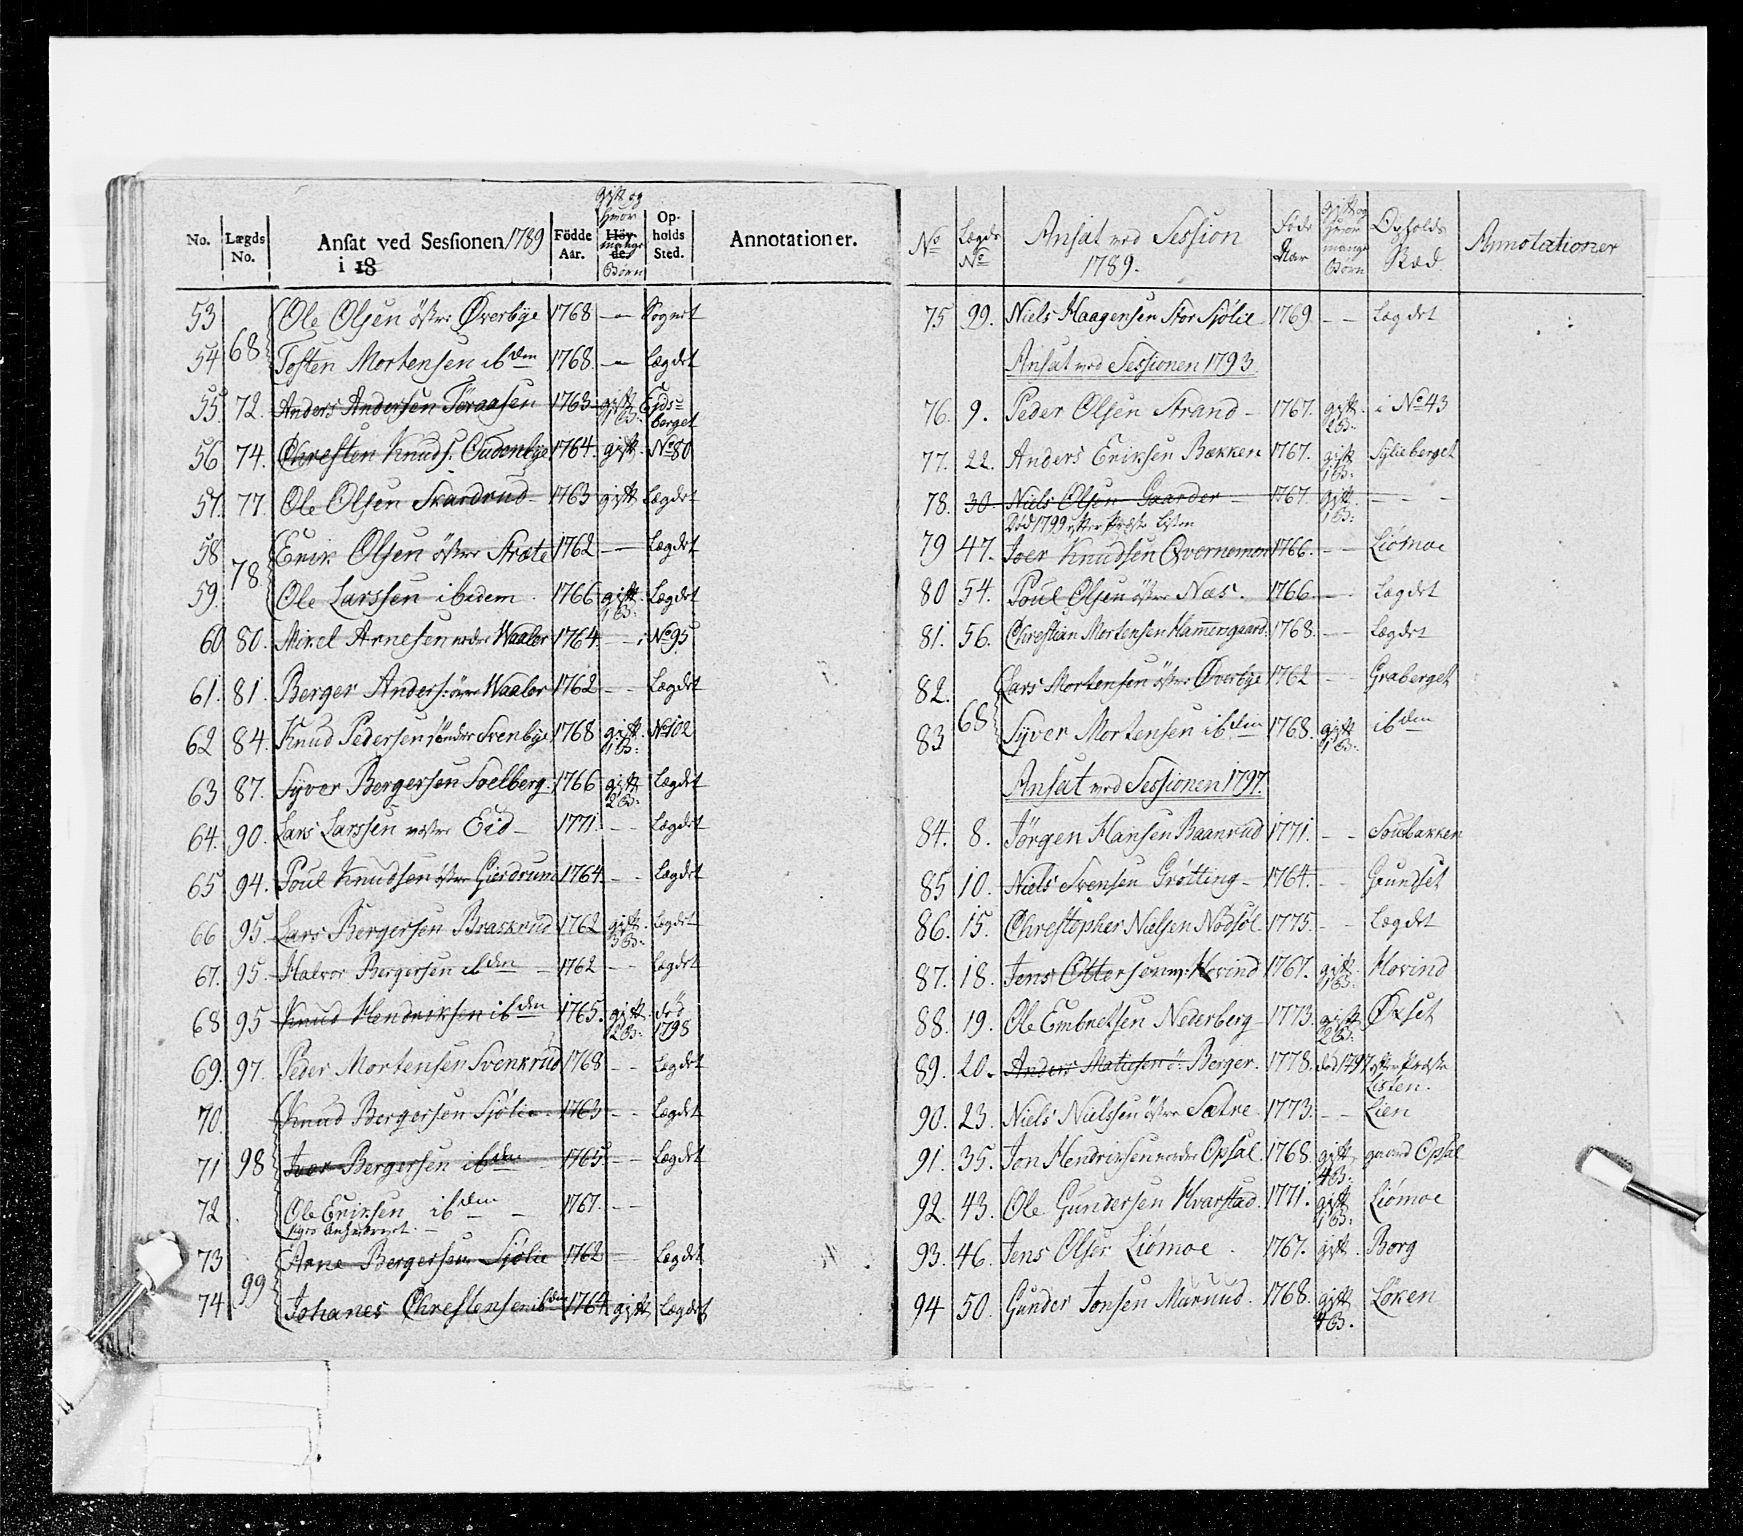 No. Lægds No. Ansat ved Sessionen 1789 i 18 Födde Aar. gift og hvor mange Börn Op-holds Sted. Annotationer.
53 68 Ole Olsen östre Øverbye 1768 — Sognet
54 Tosten Mortensen ibdem 1768 — Lægdet
55 72. Anders Andersen Töraasen 1763 gift 1 B: Eids-berget
56 74. Chresten Knuds. Oudenbye 1764. gift No 80
57. 77. Ole Olsen Skardrud 1763 gift Lægdet
58 78 Erik Olsen östre Stræte 1762 — Lægdet
59. Ole Larssen ibidem 1766 gift 1 B: Lægdet
60 80. Mikel Arnesen nedre Waaler 1764 — i No 95
61. 81. Berger Anders: övre Waaler 1762 — Lægdet
62 84. Knud Pedersen söndre Svenbye 1768 gift 1 B: No 102
63 87. Syver Bergersen Soelberg. 1766 gift 2 B: Lægdet
64. 90. Lars Larssen vestre Eid 1771 — Lægdet
65 94. Poul Knudsen östre Gierdrum 1764 — Lægdet
66 95. Lars Bergersen Braskrud 1762 gift 3 B: Lægdet
67. 95. Halvor Bergersen ibden 1762 — Lægdet
68 95 Knud Hendriksen ibden 1765. gift 2 B: död 1798
69. 97. Peder Mortensen Svenkrud 1768 — Lægdet
70. Knud Bergersen Sjölie 1763 — Lægdet
71 98 Iver Bergersen ibden 1765 — Lægdet
72. Ole Eriksen ibden 1767. —
73 99 Arne Bergersen Sjölie 1762 — Lægdet
74 Johanes Chrestensen ibden 1764 gift Lægdet
No Lægds No Ansat ved Session 1789. Föde Aar gift og hvor mange Börn Opholds Stæd. Annotationer
75 99. Niels Haagensen Stor Sjölie 1769 — Lægdet
Ansat ved Sessionen 1793.
76. 9. Peder Olsen Strand 1767. gift 2 B: i No 43
77. 22. Anders Eriksen Bækken 1767. gift 1 B: Sylieberget
78. 30. Niels Olsen Gaarder 1767 gift 1 B: —
Död 1799 efter Præste Listen
79 47. Iver Knudsen Qvernemoen 1766. — Liömoe
80 54. Poul Olsen östre Næs. 1766 — Lægdet
81. 56. Chrestian Mortensen Hammersgaard 1768. — Lægdet
82. 68 Lars Mortensen östre Øverbye 1762 — Graberget
83 Syver Mortensen ibden 1768. gift 1 B: ibden
Ansat ved Sessionen 1797.
84. 8. Jörgen Hansen Baanrud 1771. — Soubakken
85 10. Niels Svensen Grötting 1764. — Grundset
86. 15. Chrestopher Nielsen Nödsöl 1775. — Lægdet
87. 18. Jens Ottersen Hovind 1767. gift 1 B: Hovind
88. 19. Ole Embretsen Nederberg 1773. gift 2 B: Økset
89. 20. Anders Matiesen ö: Berger. 1778. död 1797 efter Præste Listen.
90. 23. Niels Nielssen östre Sætre 1773. — Lien
91. 35. Jon Hendriksen nordre Opsal. 1768. gift 4 B: gaard Opsal
92. 43. Ole Gundersen Kvarstad. 1771. gift 1 B: Liömoe
93. 46. Jens Olsen Liömoe 1767. gift Borg
94 50. Gunder Jonsen Murud. 1768. gift 4 B. Löken